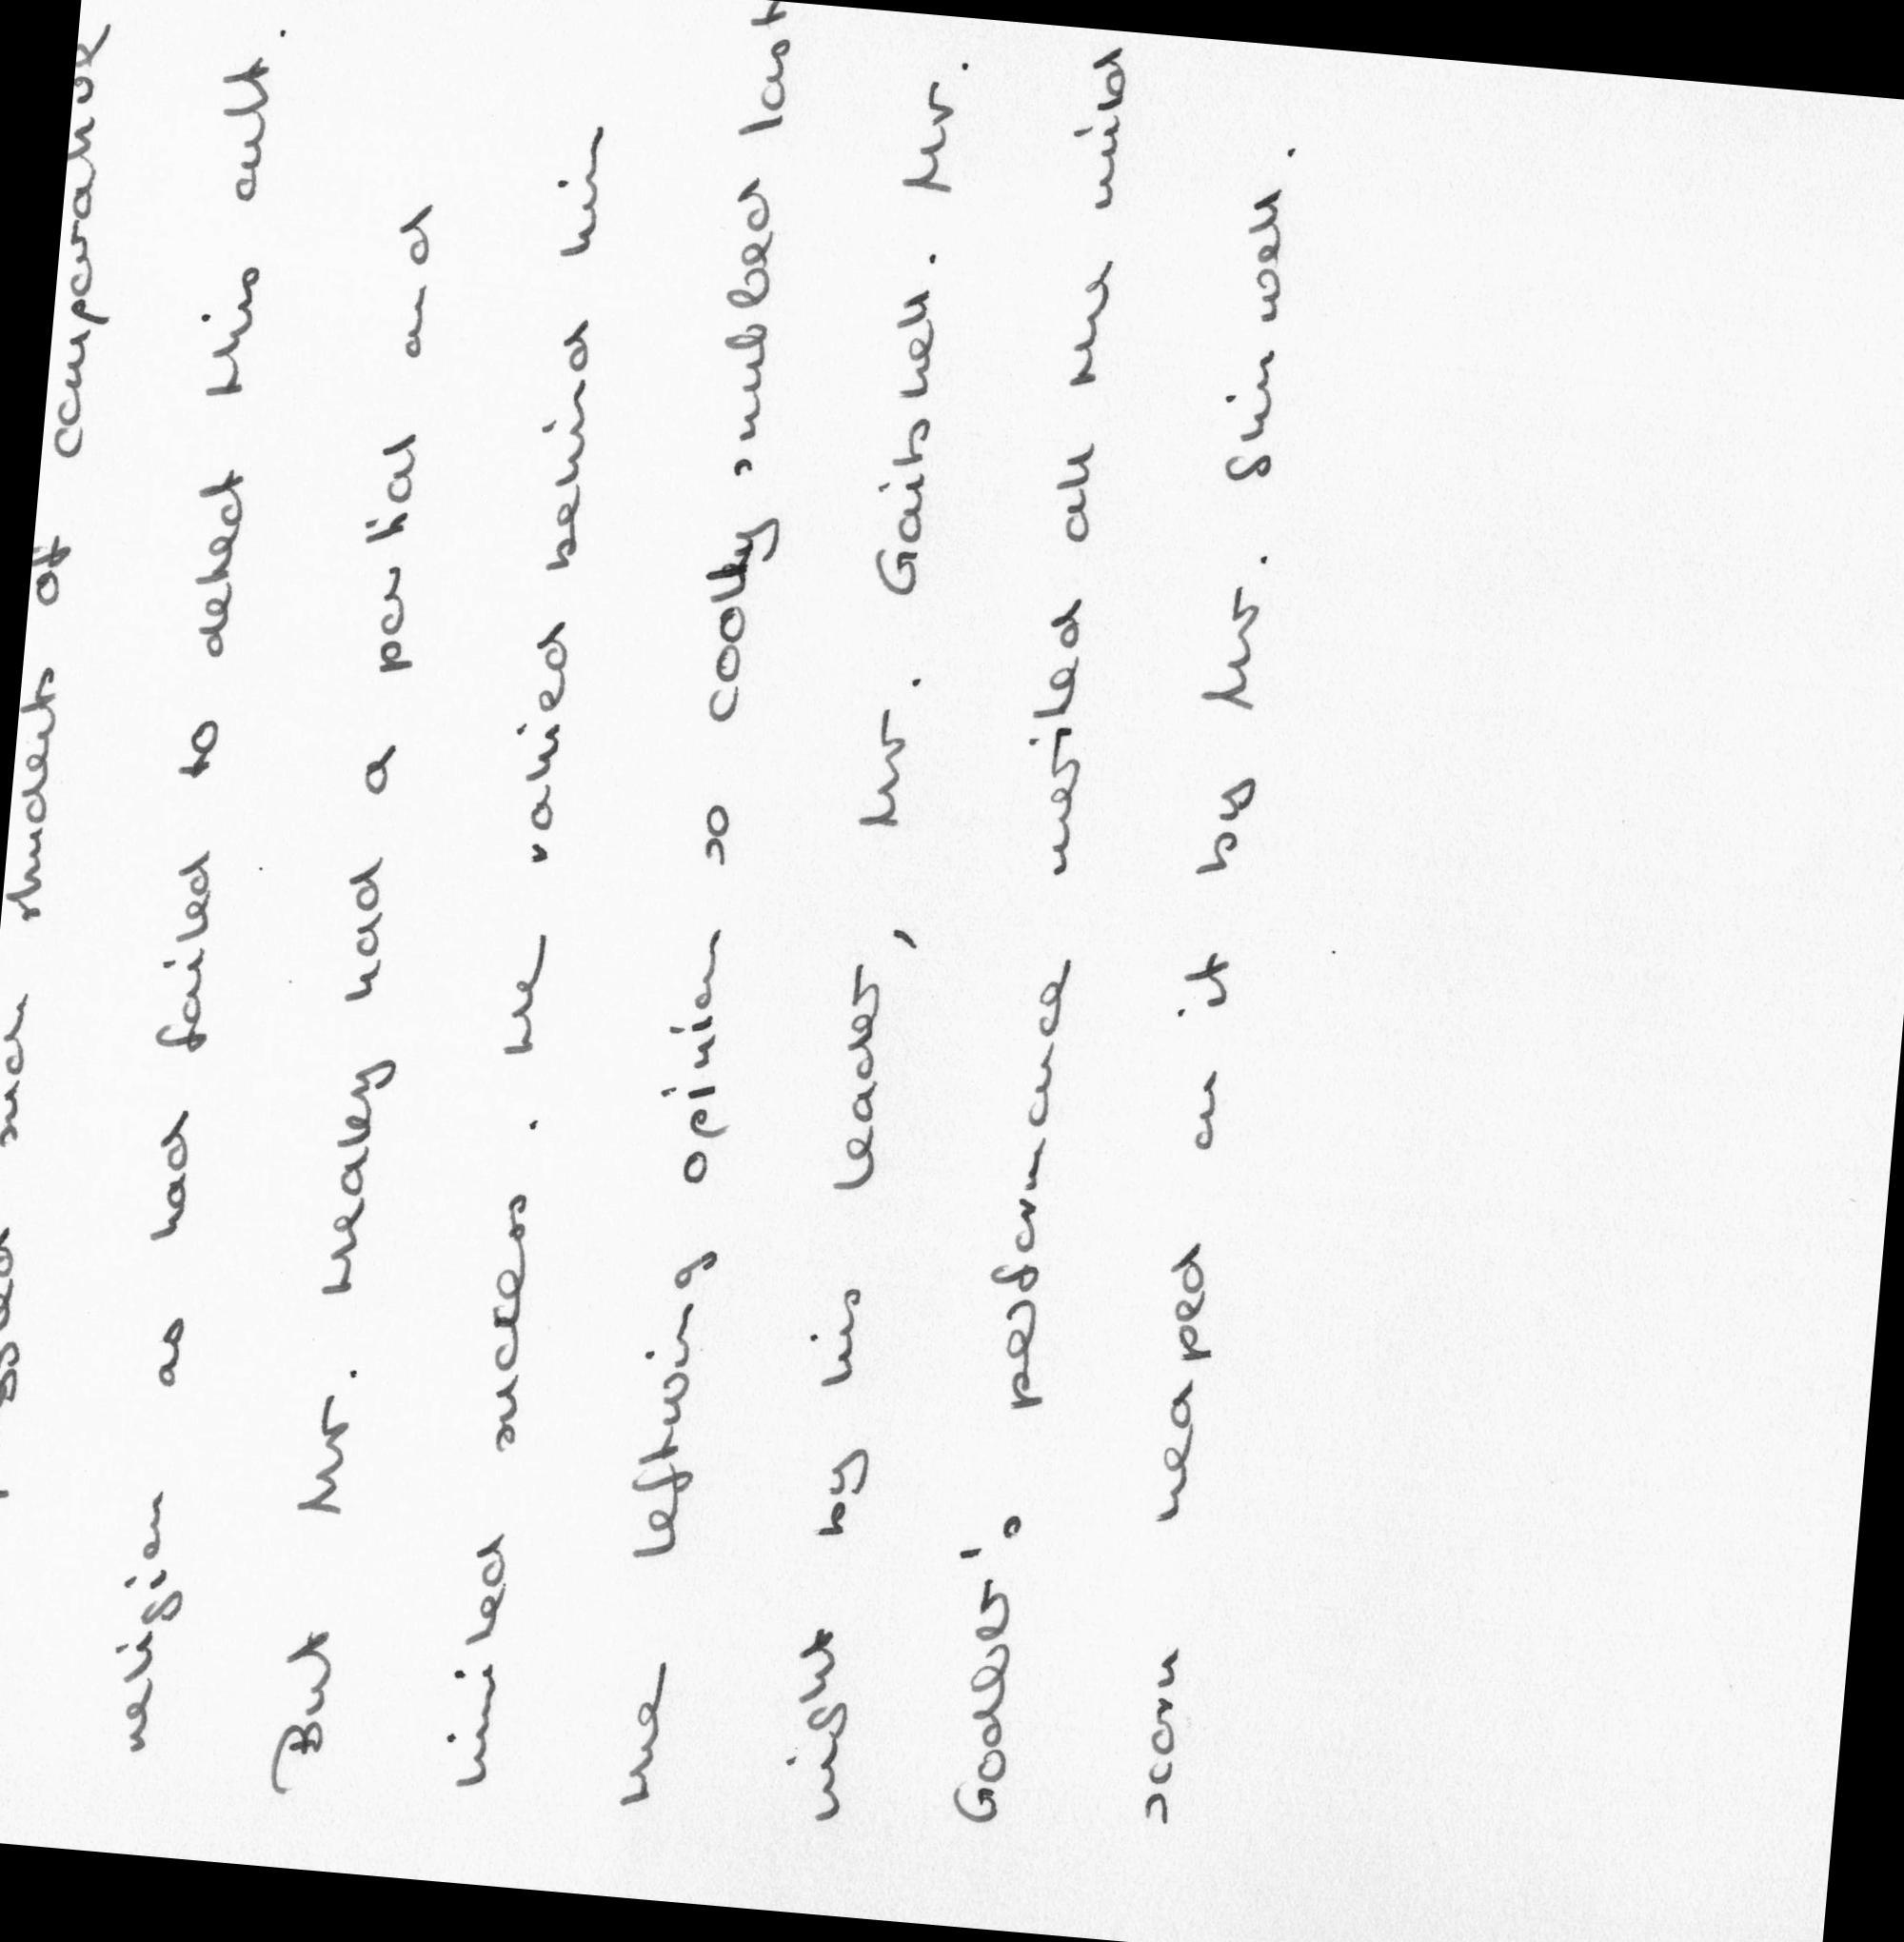 such students of comparative
religion as had failed to detect this cult.
But Mr. Healey had a partial and
limited success. He rallied behind him
the leftwing opinion so coolly snubbed last
night by his leader, Mr. Gaitskell. Mr.
Godber's performance merited all the mild
scorn heaped on it by Mr. Shinwell.